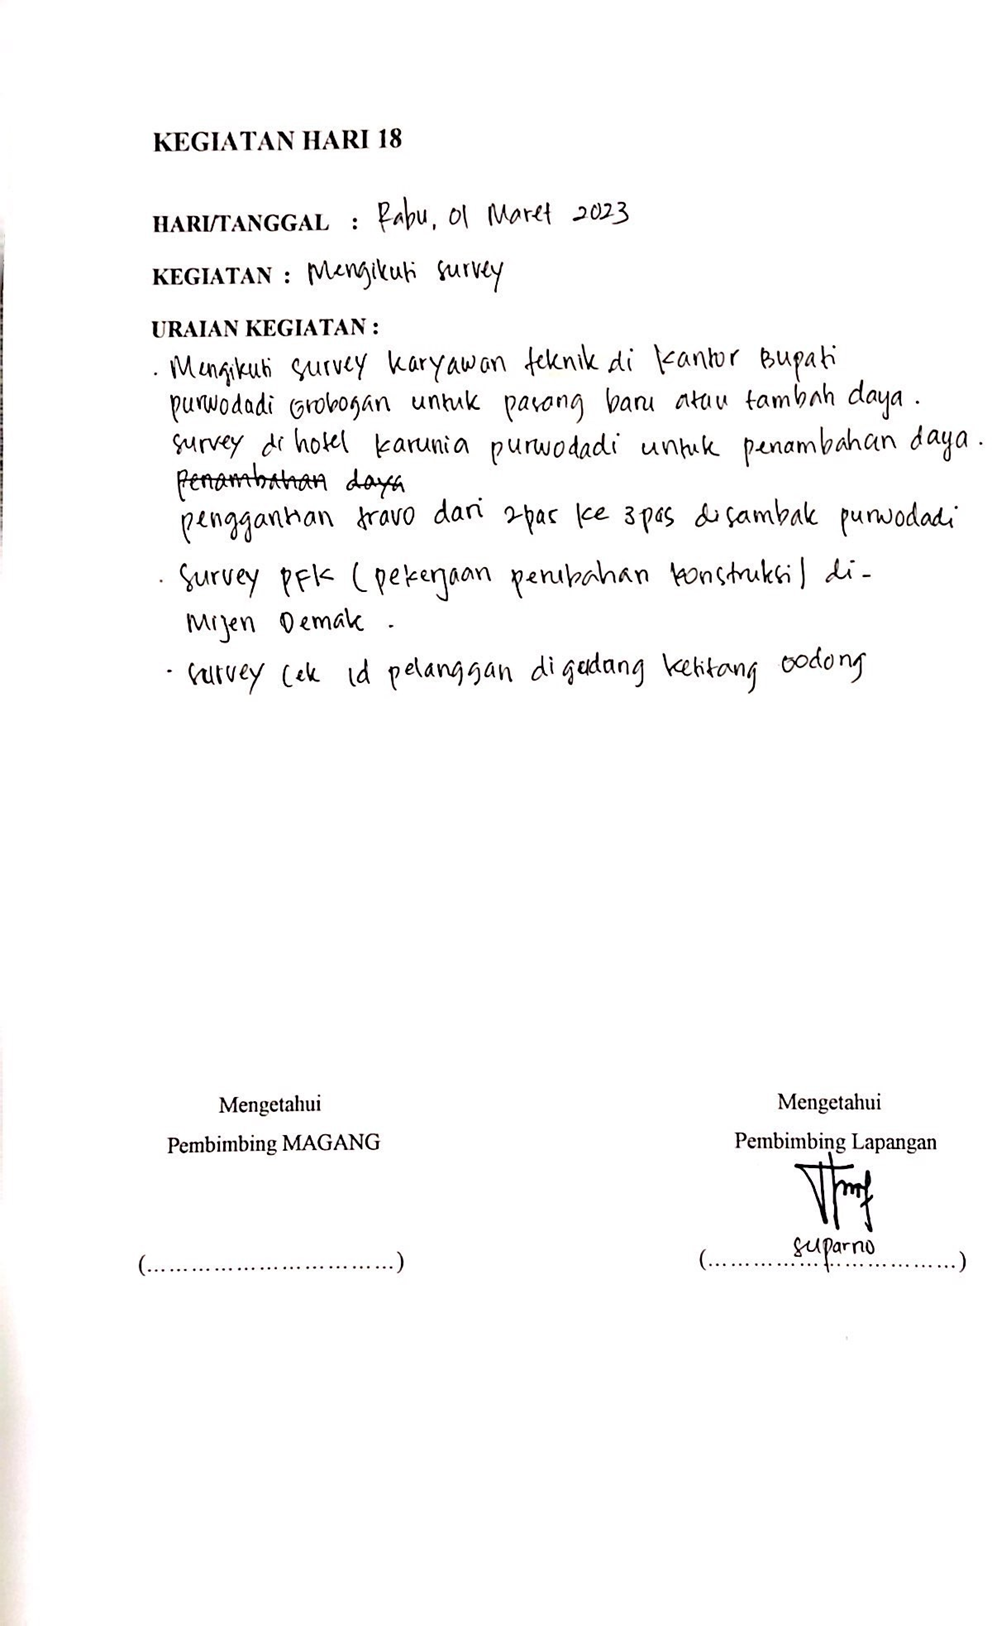 KEGIATAN HARI 18
HARI/TANGGAL : Rabu, 01 Maret 2023
KEGIATAN : Mengikuti survey
URAIAN KEGIATAN :
. Mengikuti survey karyawan teknik di kantor Bupati
purwodadi Grobogan untuk pasang baru atau tambah daya .
survey di hotel karunia purwodadi untuk penambahan daya .
Penambahan daya
penggantian travo dari 2pas ke 3pas disambak purwodadi
. Survey PFK (pekerjaan perubahan konstruksi) di-
Mijen Demak .
- survey cek id pelanggan di gudang ketitang godong
Mengetahui
Pembimbing MAGANG
(.................................)
Mengetahui
Pembimbing Lapangan
suparno
(.................................)